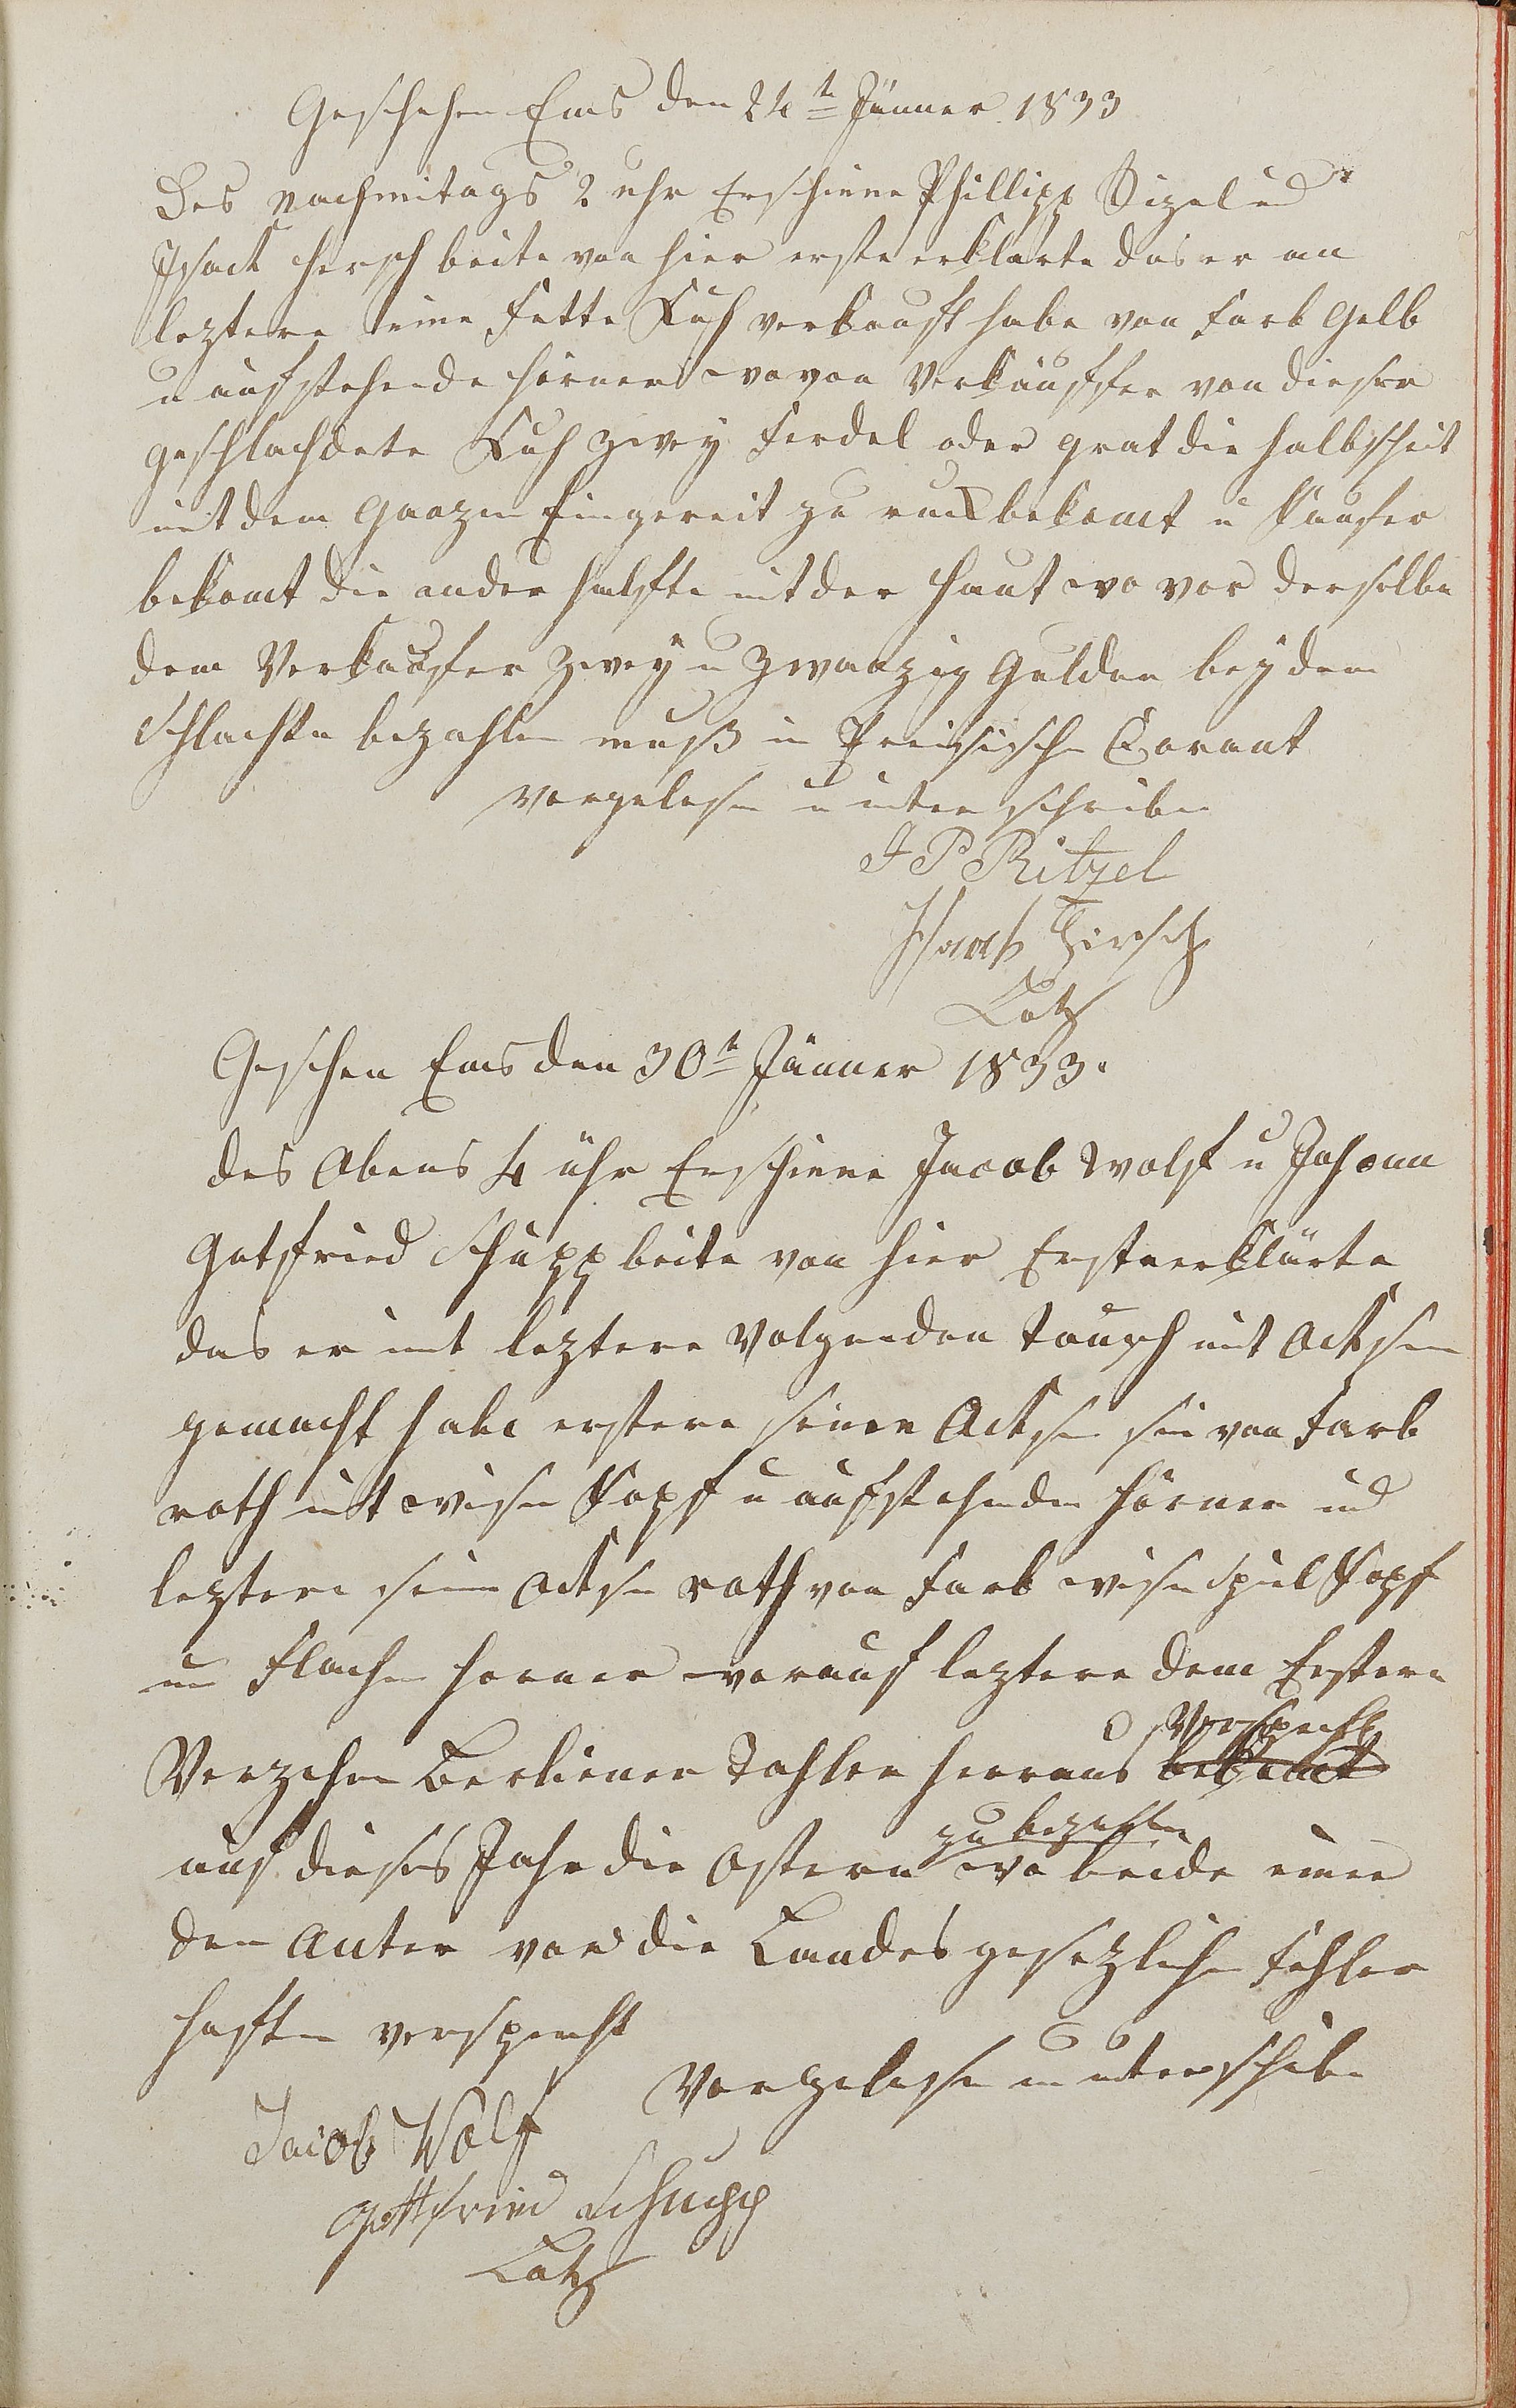 Geschehen Ems den 24t Jänner 1833
Des nachmitags 2 uhr Erschiene Phillipp Rizel und
Isack Hersch beite von hier erste erklärte das er an
leztere eine Fette Kuh verkauft habe von Farb Gelb
u aufstehende Hörner wovon Verkäuffer von dieser
geschlachdete Kuh zwey Ferdel oder grat die halbscheit
mit dem Ganzen Eingereit zu ruck bekomt u Käufer
bekomt die ander halfte mit der Haut wo vor derselbe
dem Verkäufer zwey u zwanzig Gulden bey dem
Schlachte bezahlen muß in Preisische Corant
vorgelesen u unterschriben
J P Ritzel
Isaak Hirsch
Lotz
Geschen Ems den 30t Jänner 1833.
des Abens 4 uhr Erschiene Jacob Wolf u Johann
Gotfried Schupp beite von hier Erste erklärte
das er mit leztere Volgenden Tausch mit Ocksen
gemacht habe erstere seinen Ocksen sei von Farb
roth mit weisen Kopf u aufstehenden Hörner und
leztere seinen Ocksen roth von Farb weisen Spiel Kopf
un Flachen Horner worauf leztere dem Erstere
Verspricht
Verzehen Berliener Tahler heraus bekomt
zu bezahlen
auf dieses Jahr die Ostern wo beide einer
dem Anter vor die Landes gesezlichen Fehler
haften verspricht
Vorgelesen u unterschriben
Jacob Wolf
Gottfried Schupp
Lotz